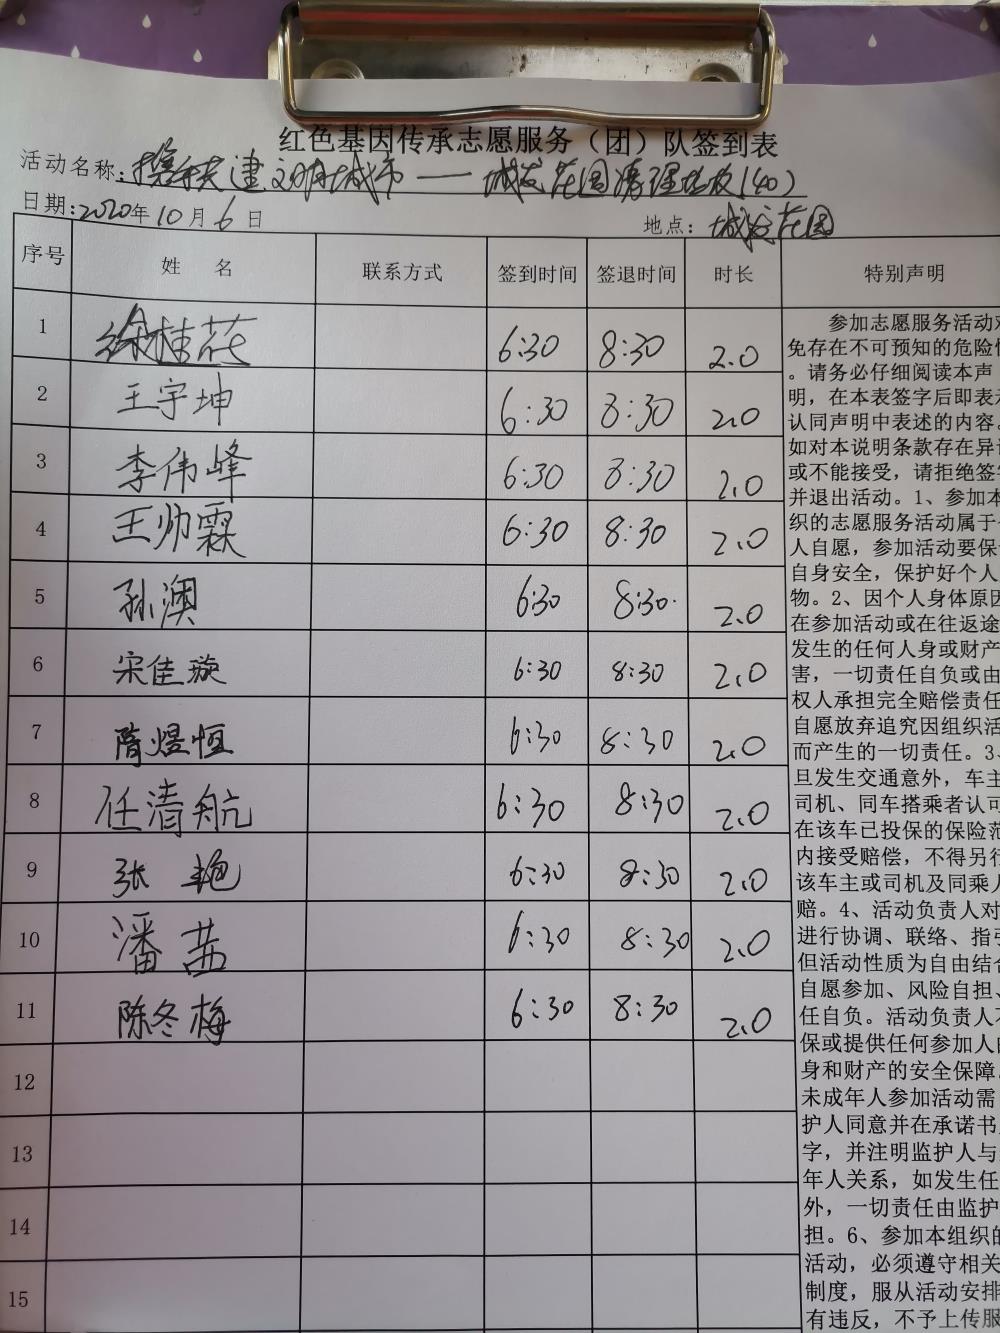 红色基因传承志愿服务（团）队签到表
活动名称：携手共建文明城市——城发花园清理垃圾（40）
日期：2020年10月6日 地点：城发花园
序号 姓 名 联系方式 签到时间 签退时间 时长 特别声明
1 徐桂花 6:30 8:30 2.0
2 王宇坤 6:30 8:30 2.0
3 李伟峰 6:30 8:30 2.0
4 王帅霖 6:30 8:30 2.0
5 孙澳 6:30 8:30 2.0
6 宋佳璇 6:30 8:30 2.0
7 隋煜恒 6:30 8:30 2.0
8 任清航 6:30 8:30 2.0
9 张艳 6:30 8:30 2.0
10 潘茜 6:30 8:30 2.0
11 陈冬梅 6:30 8:30 2.0
12
13
14
15
参加志愿服务活动
免存在不可预知的危险
。请务必仔细阅读本声
明，在本表签字后即表
认同声明中表述的内容。
如对本说明条款存在异
或不能接受，请拒绝签
并退出活动。1、参加本
织的志愿服务活动属于
人自愿，参加活动要保
自身安全，保护好个人
物。2、因个人身体原因
在参加活动或在往返途
发生的任何人身或财产
害，一切责任自负或由
权人承担完全赔偿责任
自愿放弃追究因组织活
而产生的一切责任。3、
旦发生交通意外，车主
司机、同车搭乘者认可
在该车已投保的保险范
内接受赔偿，不得另行
该车主或司机及同乘人
赔。4、活动负责人对
进行协调、联络、指引
但活动性质为自由结合
自愿参加、风险自担、
任自负。活动负责人不
保或提供任何参加人的
身和财产的安全保障。
未成年人参加活动需
护人同意并在承诺书
字，并注明监护人与
年人关系，如发生任
外，一切责任由监护
担。6、参加本组织的
活动，必须遵守相关
制度，服从活动安排
有违反，不予上传服